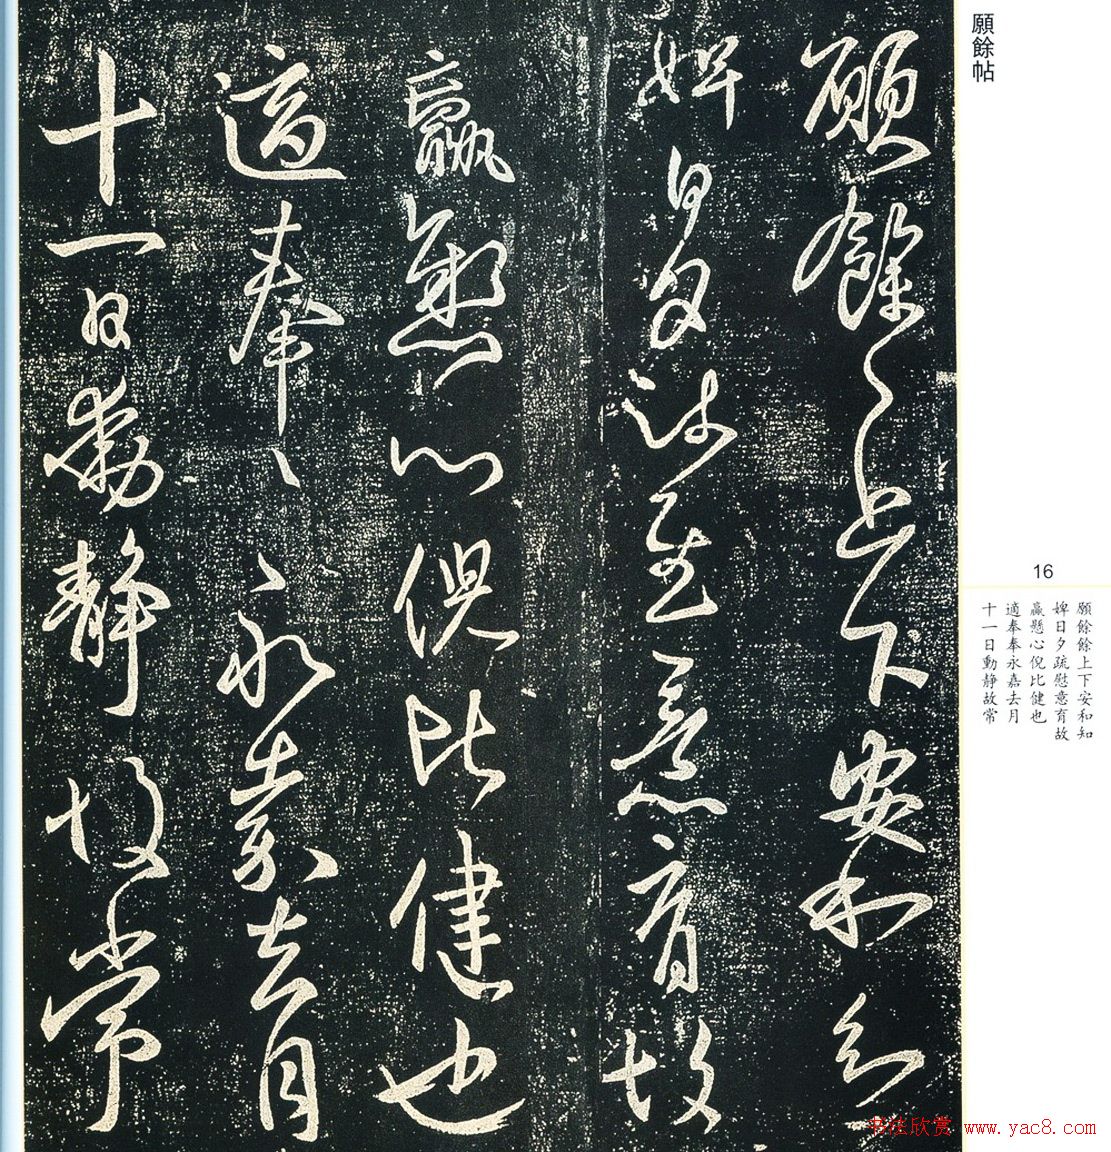 願餘帖
願餘〻上下安和知
婢日夕疏慰意育故
羸懸心倪比健也
適奉〻永嘉去月
十一日動靜故常
16
願餘餘上下安和知
婢日夕疏慰意育故
羸懸心倪比健也
適奉奉永嘉去月
十一日動靜故常
书法欣赏 www.yac8.com